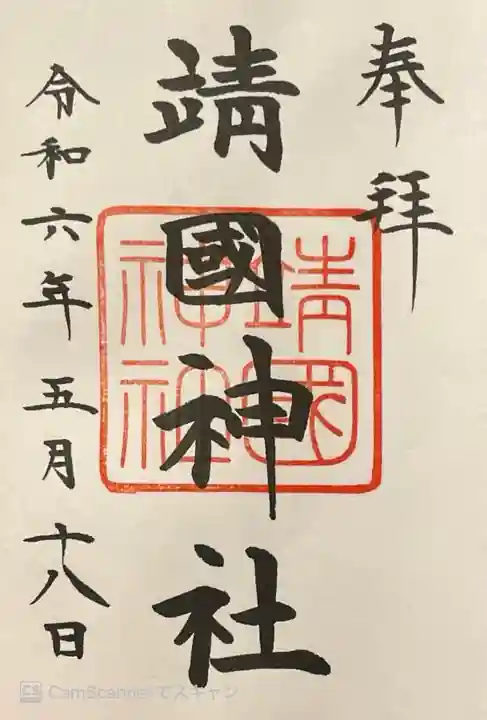 奉拝
靖國神社
靖國
神社
令和六年五月十八日
CS CamScannerでスキャン